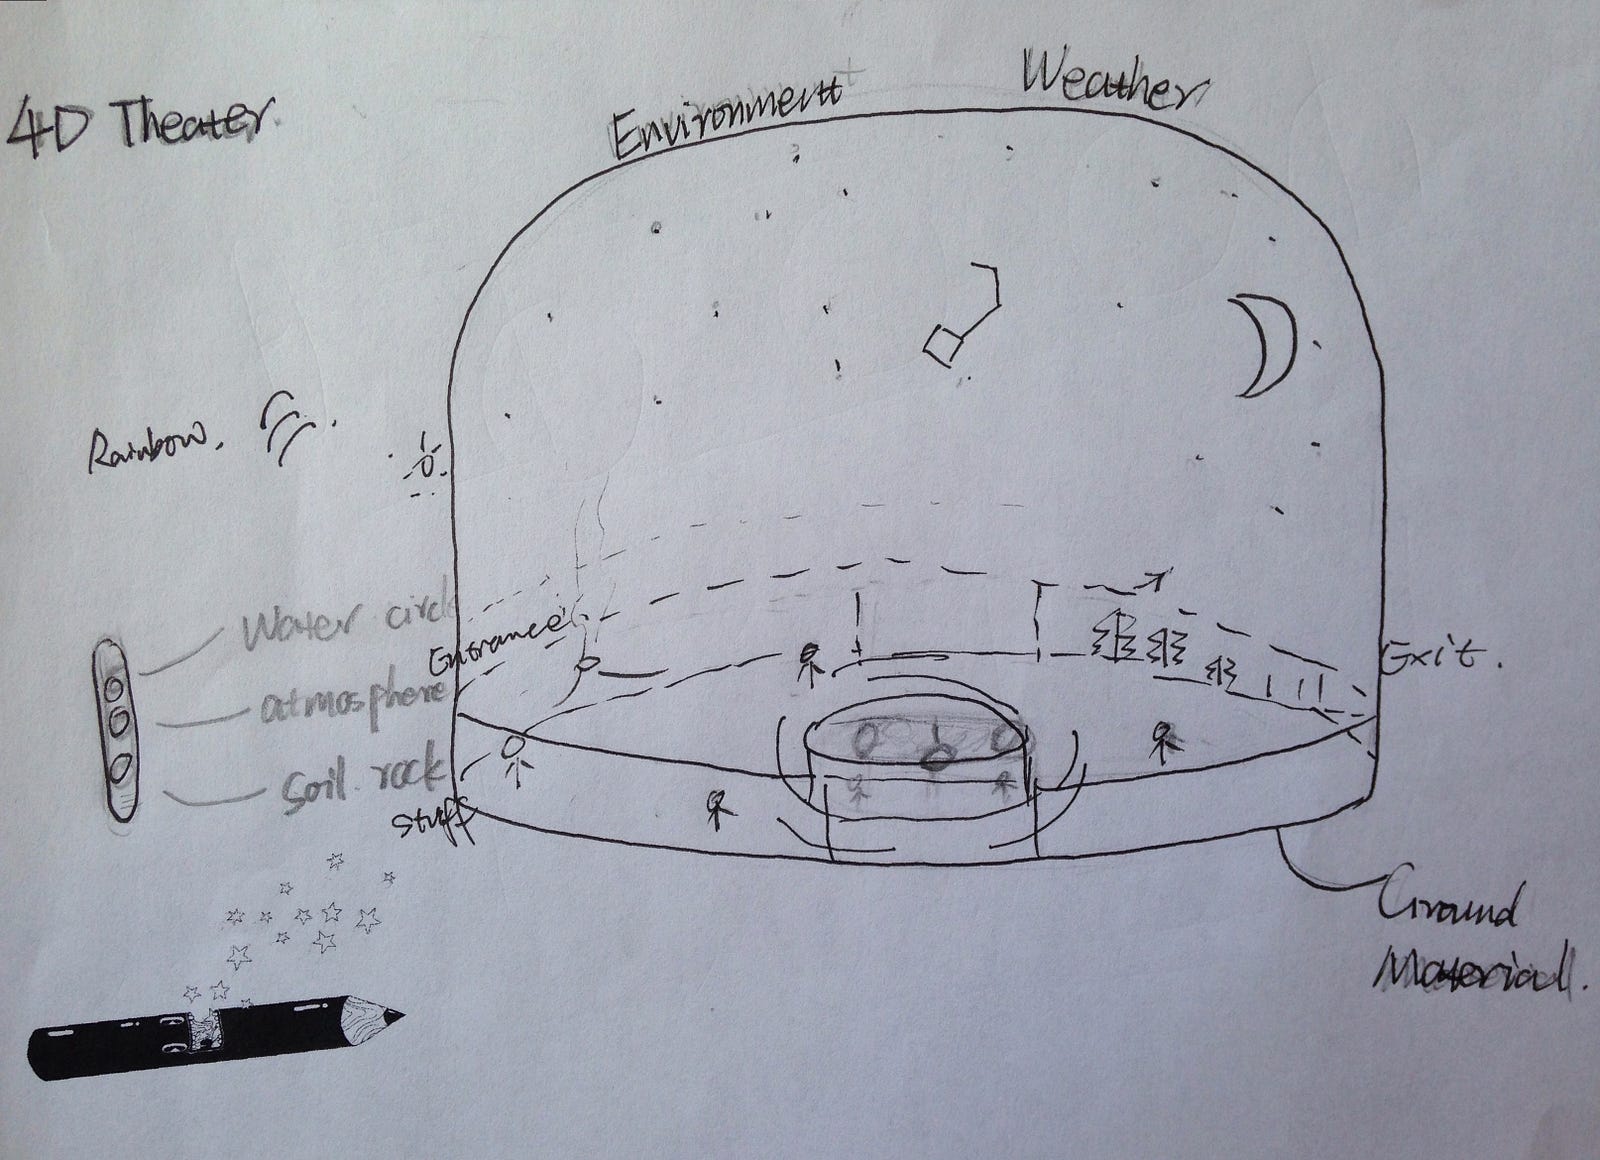 4D Theater
Environment
Weather
Rainbow.
Water circl
Entrance
Exit.
atmosphere
Soil rock
stuff
Ground
Material.